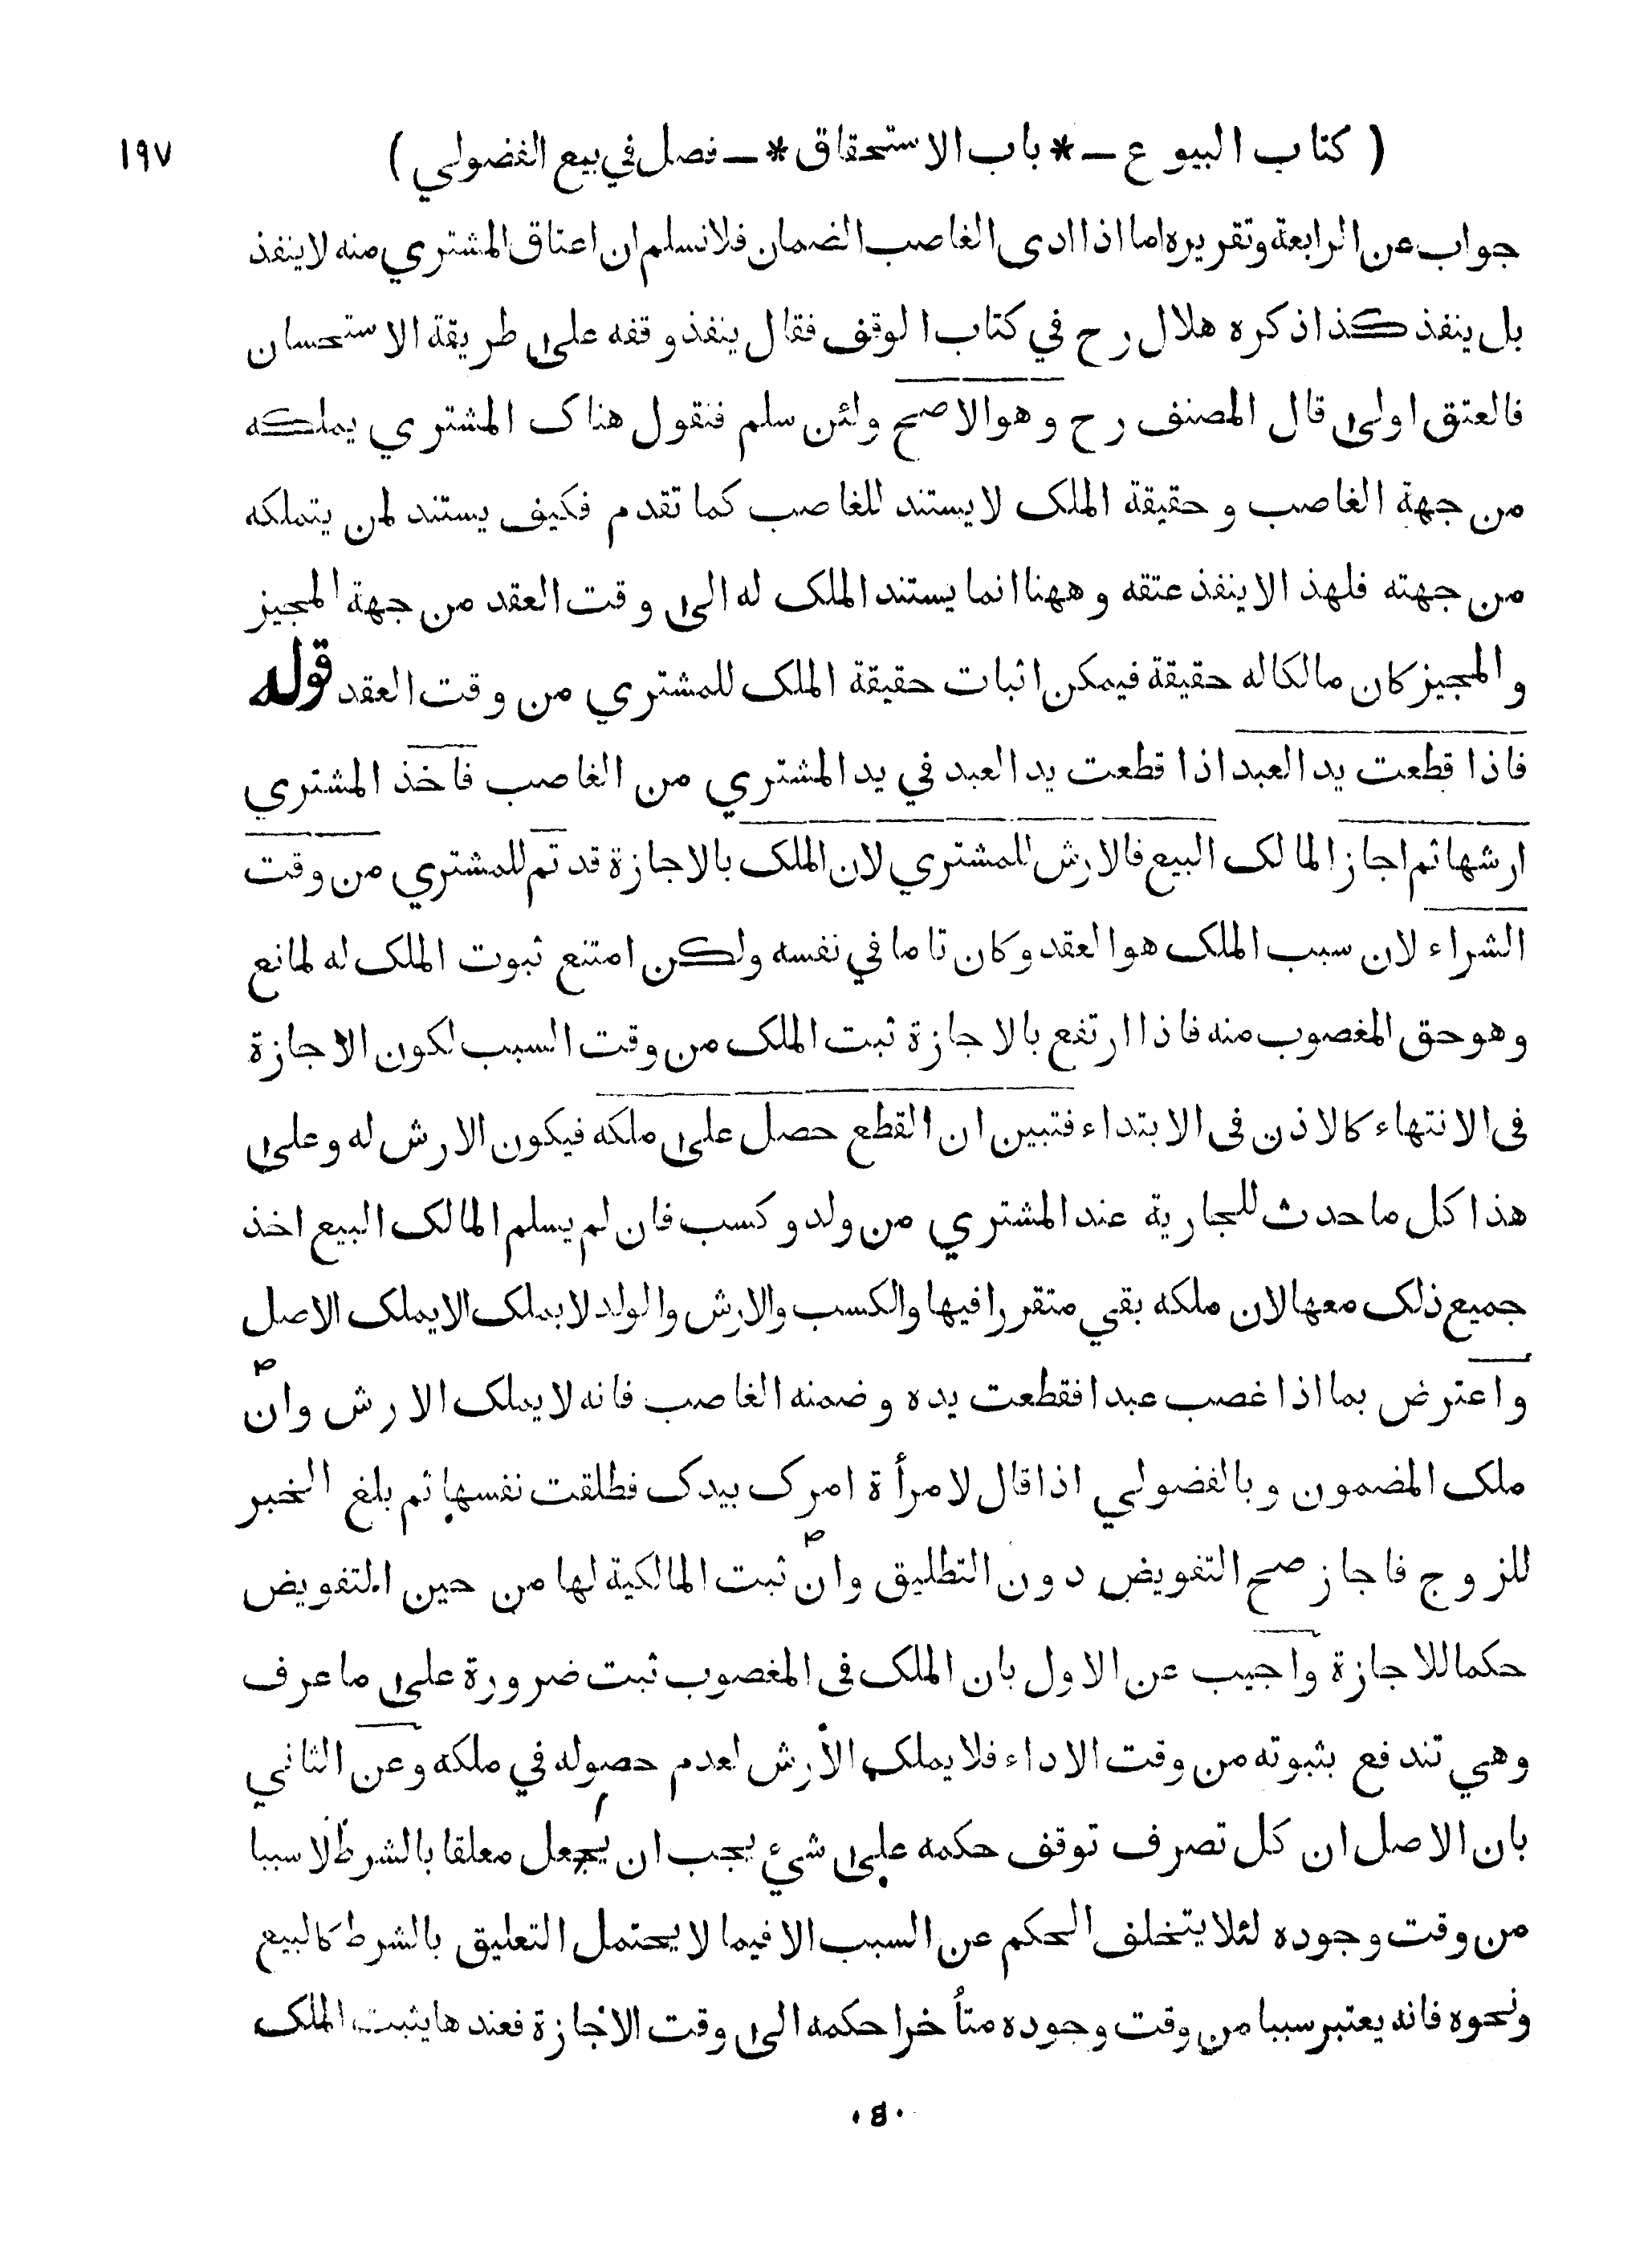 ( كتاب البيوع ـ * باب الاستحقاق * ـ فصل في بيع الفضولي ) ١٩٧
جواب عن الرابعة وتقريره اما اذا ادى الغاصب الضمان فلانسلم ان اعتاق المشتري منه لاينفذ
بل ينفذ كذا ذكره هلال رح في كتاب الوقف فقال ينفذ وقفه على طريقة الاستحسان
فالعتق اولى قال المصنف رح وهو الاصح ولئن سلم فنقول هناك المشتري يملكه
من جهة الغاصب وحقيقة الملك لايستند للغاصب كما تقدم فكيف يستند لمن يتملكه
من جهته فلهذا لاينفذ عتقه وههنا انما يستند الملك له الى وقت العقد من جهة المجيز
والمجيز كان مالكا له حقيقة فيمكن اثبات حقيقة الملك للمشتري من وقت العقد قوله
فاذا قطعت يد العبد اذا قطعت يد العبد في يد المشتري من الغاصب فاخذ المشتري
ارشها ثم اجاز المالك البيع فالارش للمشتري لان الملك بالاجازة قد تم للمشتري من وقت
الشراء لان سبب الملك هو العقد وكان تاما في نفسه ولكن امتنع ثبوت الملك له لمانع
وهو حق المغصوب منه فاذا ارتفع بالاجازة ثبت الملك من وقت السبب لكون الاجازة
فى الانتهاء كالاذن فى الابتداء فتبين ان القطع حصل على ملكه فيكون الارش له وعلى
هذا كل ما حدث للجارية عند المشتري من ولد وكسب فان لم يسلم المالك البيع اخذ
جميع ذلك معها لان ملكه بقي متقررا فيها والكسب والارش والولد لايملك الايملك الاصل
واعترض بما اذا غصب عبدا فقطعت يده وضمنه الغاصب فانه لايملك الارش وان
ملك المضمون وبالفضولي اذا قال لامرأة امرك بيدك فطلقت نفسها ثم بلغ الخبر
للزوج فاجاز صح التفويض دون التطليق وان ثبت المالكية لها من حين التفويض
حكما للاجازة واجيب عن الاول بان الملك فى المغصوب ثبت ضرورة على ما عرف
وهي تندفع بثبوته من وقت الاداء فلا يملك الأرش لعدم حصوله في ملكه وعن الثاني
بان الاصل ان كل تصرف توقف حكمه على شيء يجب ان يجعل معلقا بالشرط لا سببا
من وقت وجوده لئلا يتخلف الحكم عن السبب الا فيما لا يحتمل التعليق بالشرط كالبيع
ونحوه فانه يعتبر سببا من وقت وجوده متأخرا حكمه الى وقت الاجازة فعندها يثبت الملك